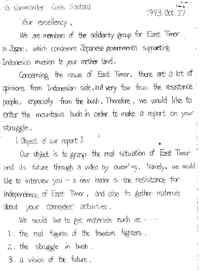 a Commander Conis Santana
1993. Oct. 27
Your excellency,
We are members of the solidarity group for East Timor
in Japan, which condemns Japanese government's supporting
Indonesian invasion to your mother land.
Concerning the issue of East Timor, there are a lot of
opinions from Indonesian side, and very few from the resistance
people, especially from the bush. Therefore, we would like to
enter the mountains bush in order to make a report on your
struggle.
[Object of our report]
Our object is to grasp the real situation of East Timor
and its future through a video by Namely, we would
like to interview you - a new leader of the resistance for
independence of East Timor, and also to gather materials
about your comrades' activities.
We would like to get materials such as ----
1. the real figures of the freedom fighters.
2. the struggle in bush.
3. a vision of the future.